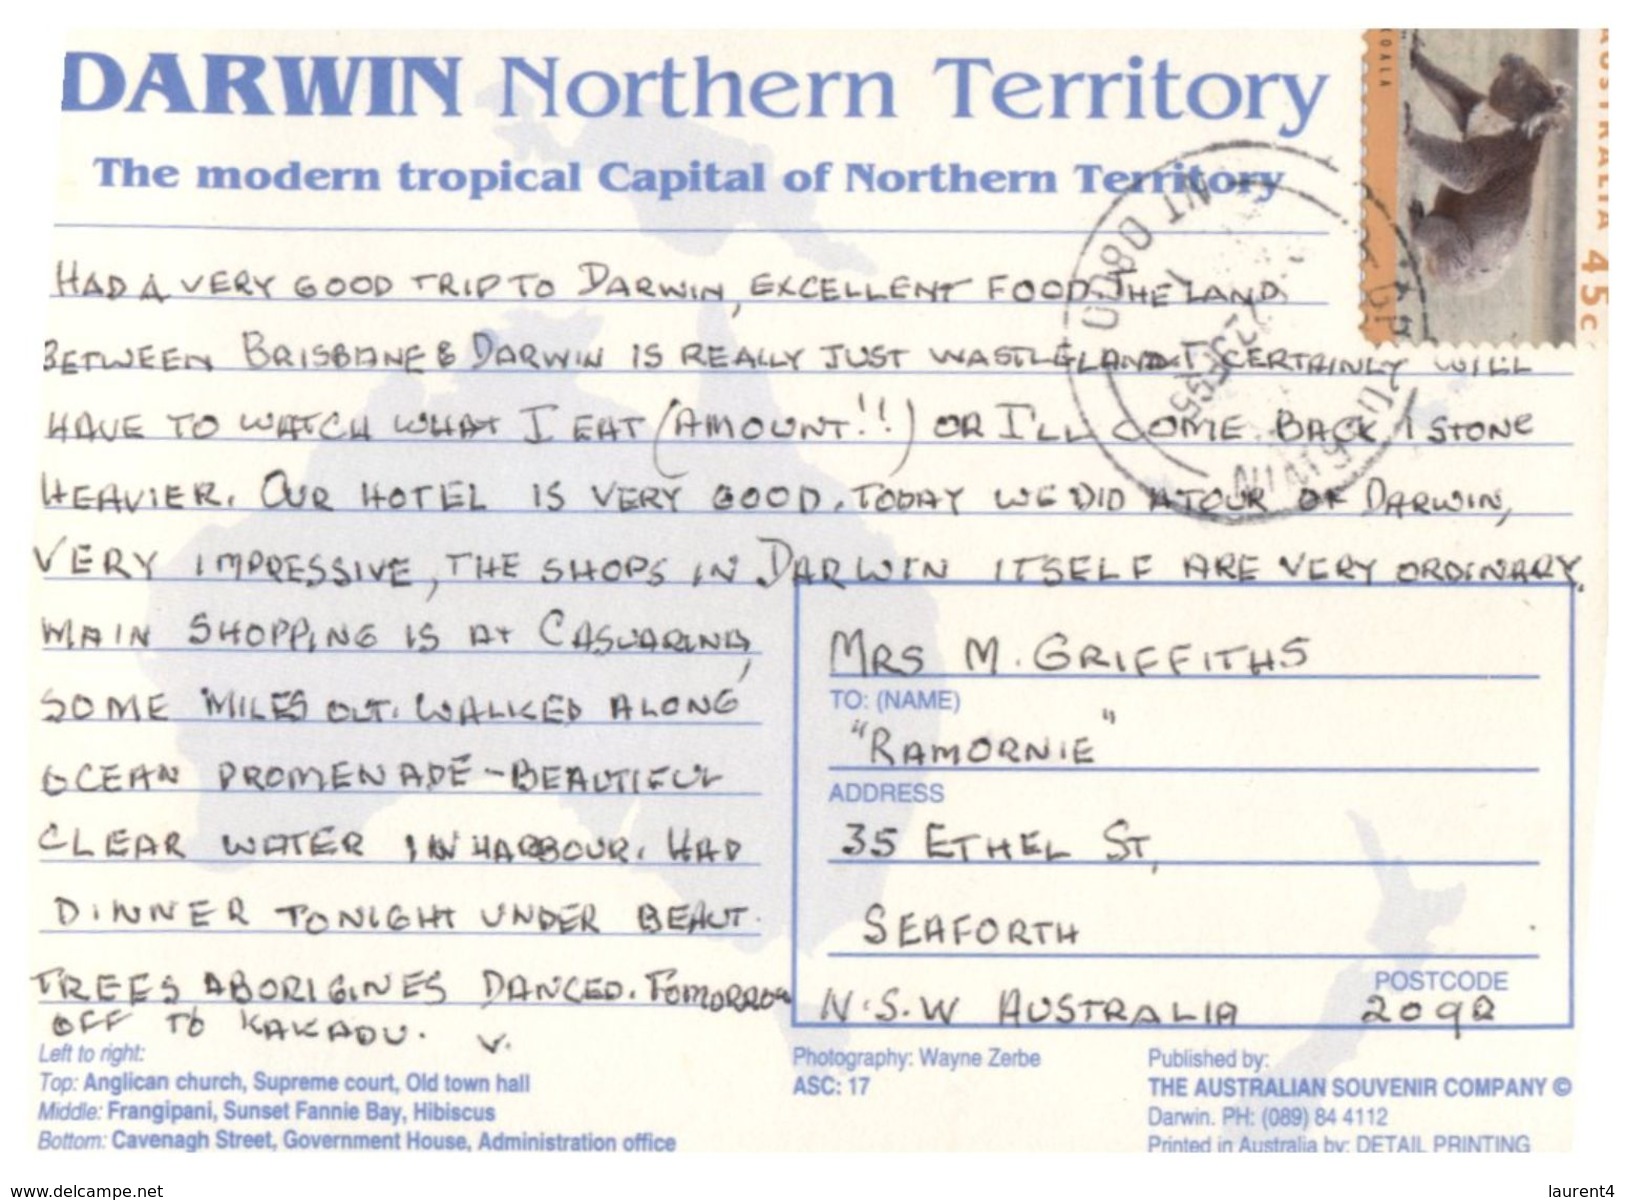 DARWIN Northern Territory
The modern tropical Capital of Northern Territory
KOALA
AUSTRALIA 45c
NT 0800
HAD A VERY GOOD TRIP TO DARWIN, EXCELLENT FOOD. THE LAND
BETWEEN BRISBANE & DARWIN IS REALLY JUST WASTELAND. I CERTAINLY WILL
HAVE TO WATCH WHAT I EAT (AMOUNT!!) OR I'LL COME BACK 1 STONE
HEAVIER. OUR HOTEL IS VERY GOOD. TODAY WE DID A TOUR OF DARWIN,
VERY IMPRESSIVE, THE SHOPS IN DARWIN ITSELF ARE VERY ORDINARY.
MAIN SHOPPING IS AT CASUARINA,
SOME MILES OUT. WALKED ALONG
OCEAN PROMENADE - BEAUTIFUL
CLEAR WATER IN HARBOUR. HAD
DINNER TONIGHT UNDER BEAUT.
TREES ABORIGINES DANCED. TOMORROW
OFF TO KAKADU. V.
MRS M. GRIFFITHS
TO: (NAME)
"RAMORNIE"
ADDRESS
35 ETHEL ST,
SEAFORTH
POSTCODE
N.S.W AUSTRALIA 2092
Left to right:
Top: Anglican church, Supreme court, Old town hall
Middle: Frangipani, Sunset Fannie Bay, Hibiscus
Bottom: Cavenagh Street, Government House, Administration office
Photography: Wayne Zerbe
ASC: 17
Published by:
THE AUSTRALIAN SOUVENIR COMPANY ©
Darwin. PH: (089) 84 4112
Printed in Australia by: DETAIL PRINTING
www.delcampe.net
laurent4